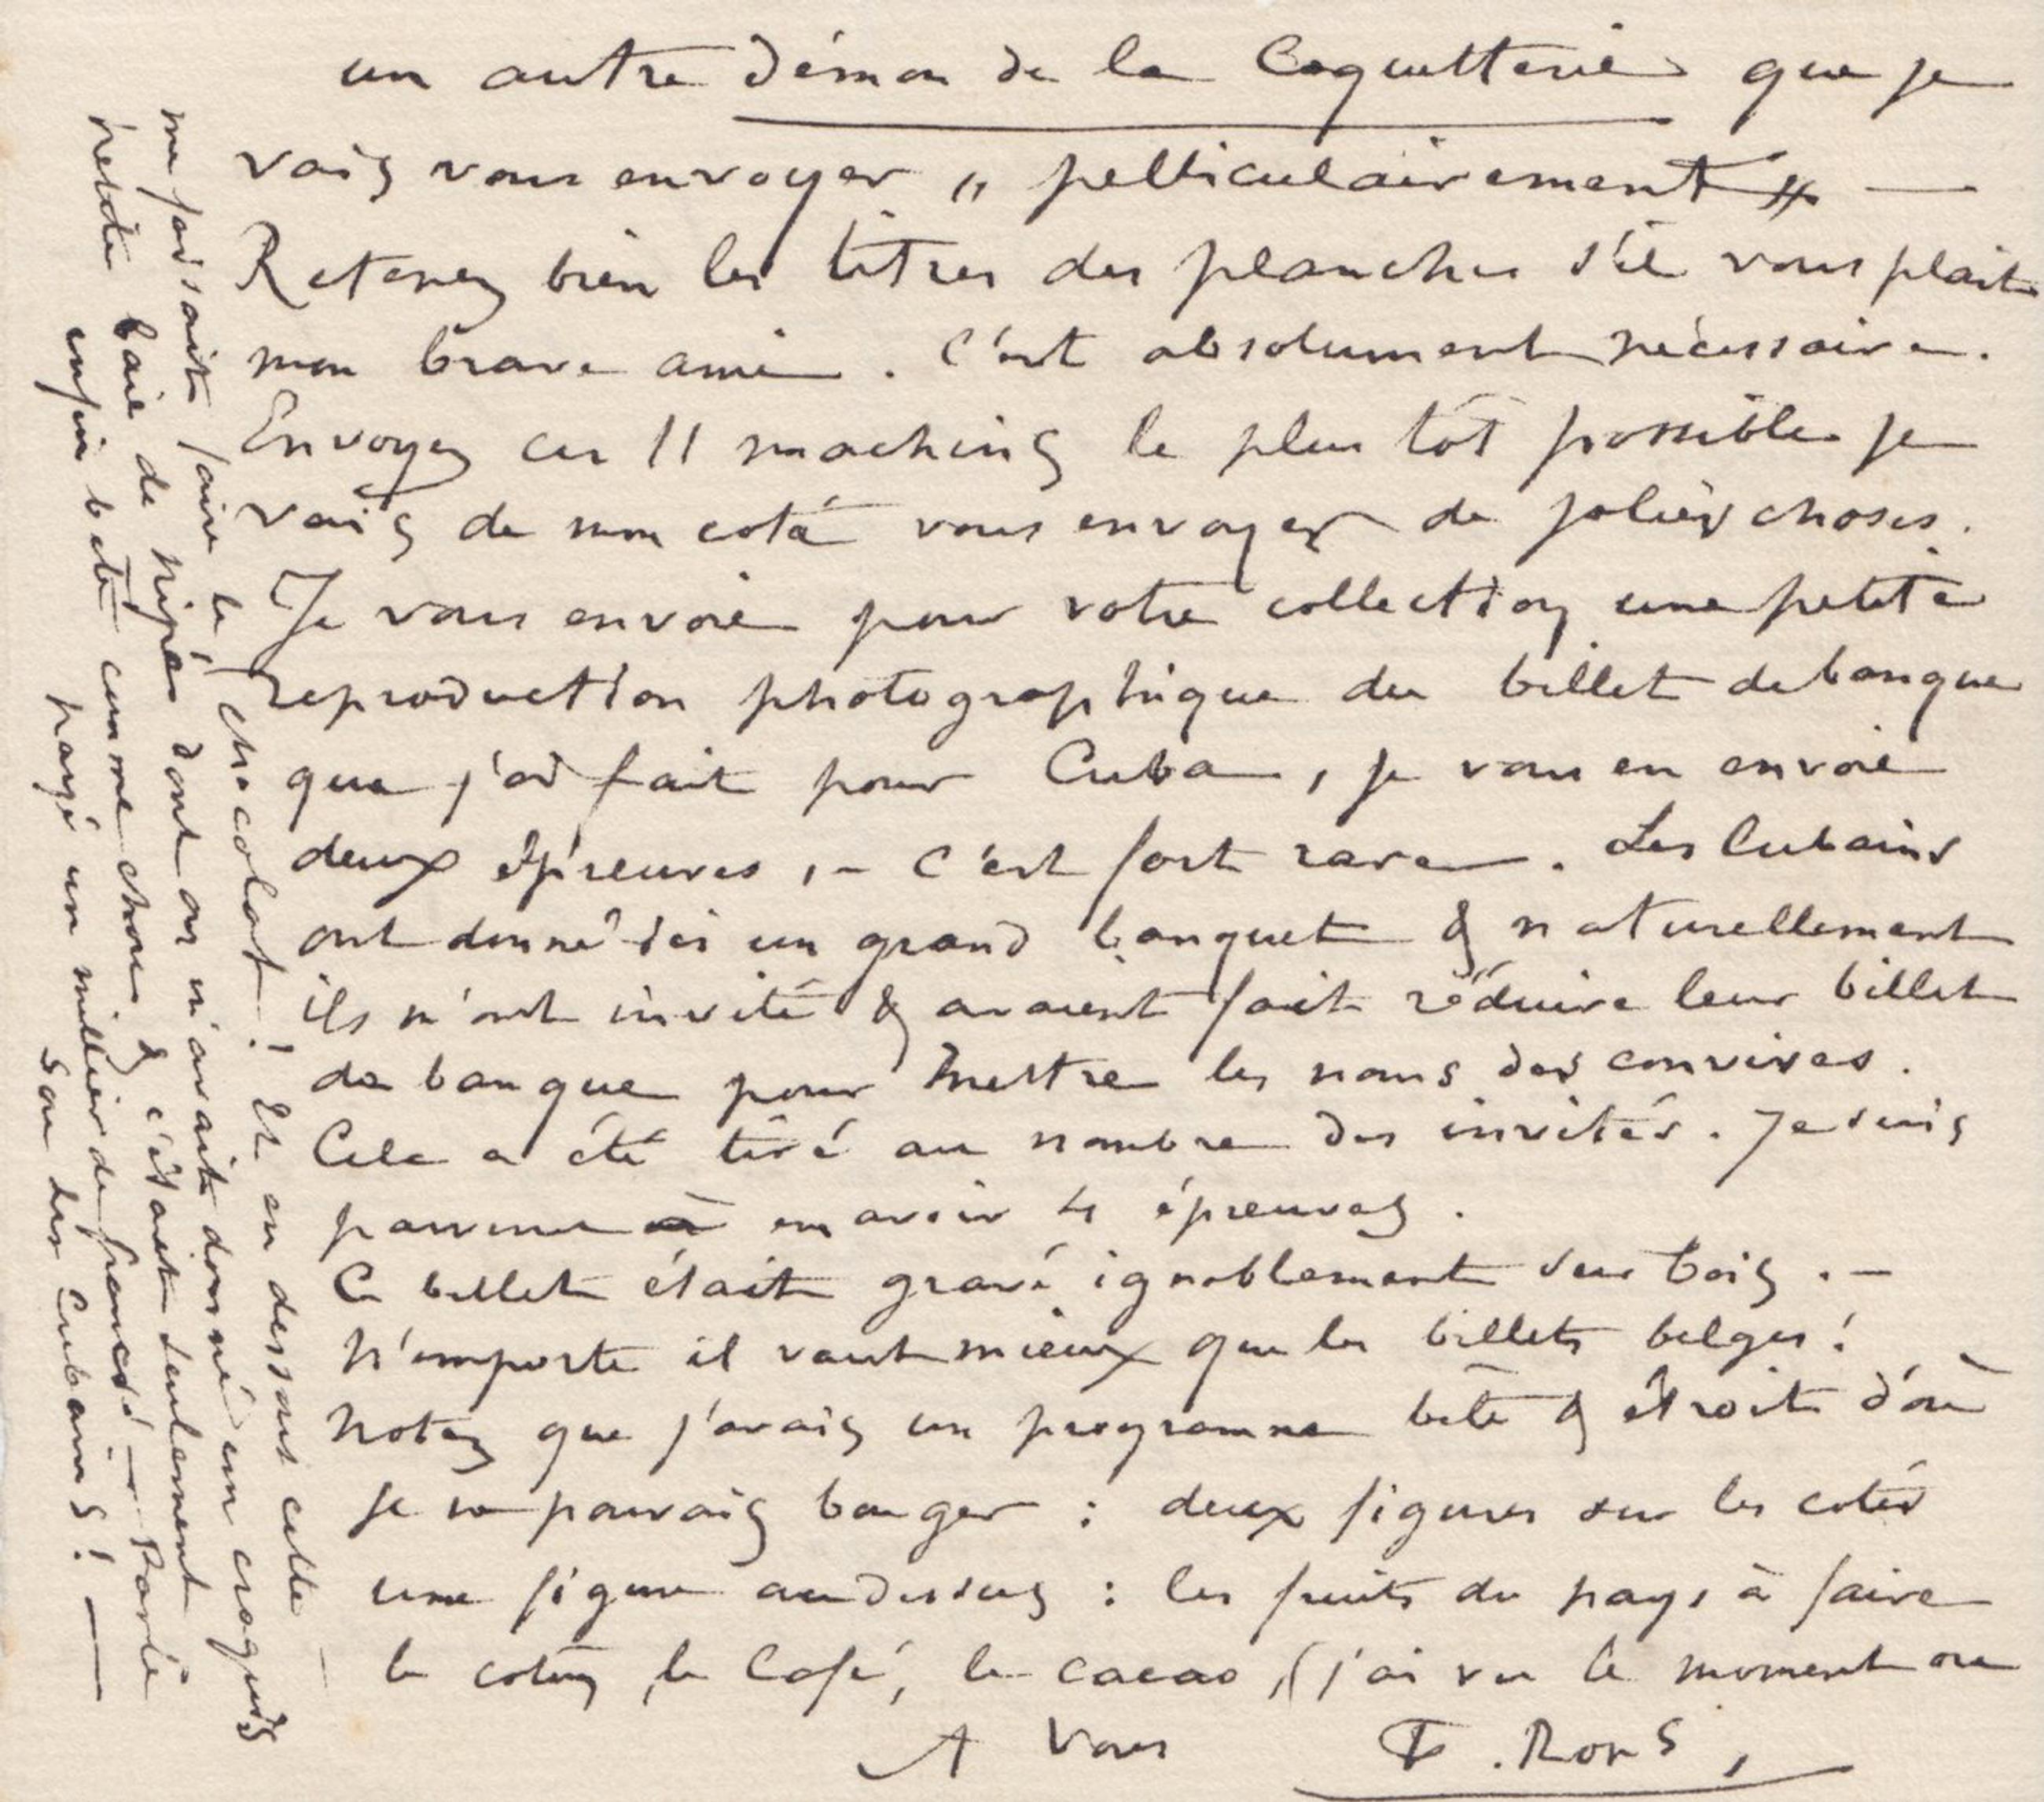 un autre Démon de la Coquetterie que je
vais vous envoyer „ pelliculairement » —
Retenez bien les titres des planches s'il vous plait
mon brave ami. C'est absolument nécessaire.
Envoyez ces 11 machins le plus tôt possible je
vais de mon coté vous envoyer de jolies choses.
Je vous envoie pour votre collection une petite
reproduction photographique du billet de banque
que j'ai fait pour Cuba, je vous en envoie
deux épreuves, – c'est fort rare. Les Cubains
ont donné ici un grand banquet & naturellement
ils m'ont invité & avaient fait réduire leur billet
de banque pour mettre les noms des convives.
Cela a été tiré au nombre des invités. Je suis
parvenu à en avoir 4 épreuves.
Ce billet était gravé ignoblement sur bois. –
N'importe il vaut mieux que les billets belges!
Notez que j'avais un programme bête & étroit d'où
je ne pouvais bouger : deux figures sur les cotés
une figure au dessus : les fruits du pays à faire
le coton, le Café, le cacao, (j'ai vu le moment ou
A Vous F. Rops,
me faisait faire le chocolat! Et en dessous cette –
petite baie de Nipes dont on m'avait donné un croquis
enfin bête comme chou & c'étant seulement
payé un millier de francs! — Parlé
son des Cubains! —